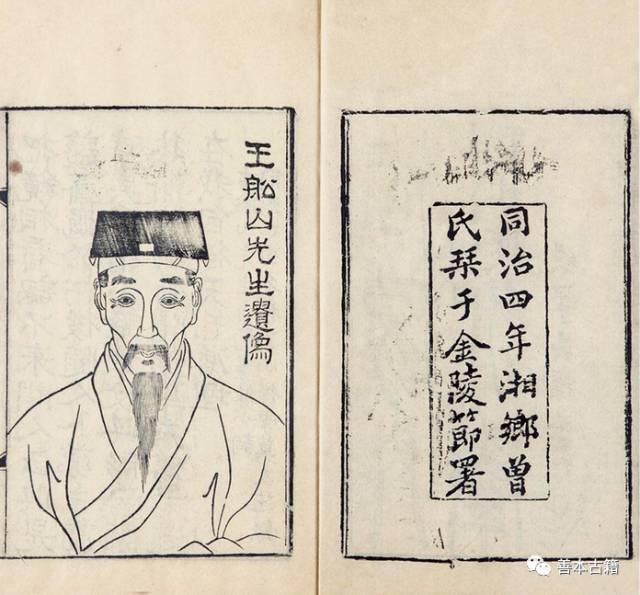 同治四年湘鄉曾
氏栞于金陵節署
王舩山先生遺像
善本古籍